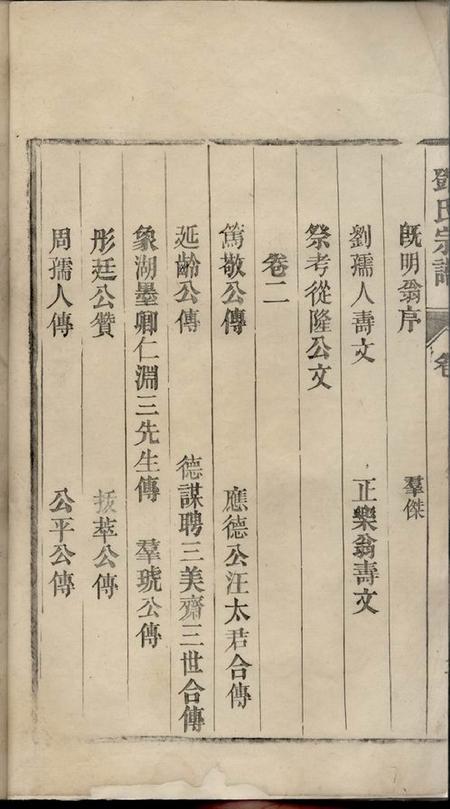 鄧氏宗譜
卷
既明翁序 羣傑
劉孺人壽文 正樂翁壽文
祭考從隆公文
卷二
篤敬公傳 應德公汪太君合傳
延齡公傳 德謀聘三美齋三世合傳
象湖墨卿仁淵三先生傳 羣琥公傳
彤廷公贊 拔萃公傳
周孺人傳 公平公傳